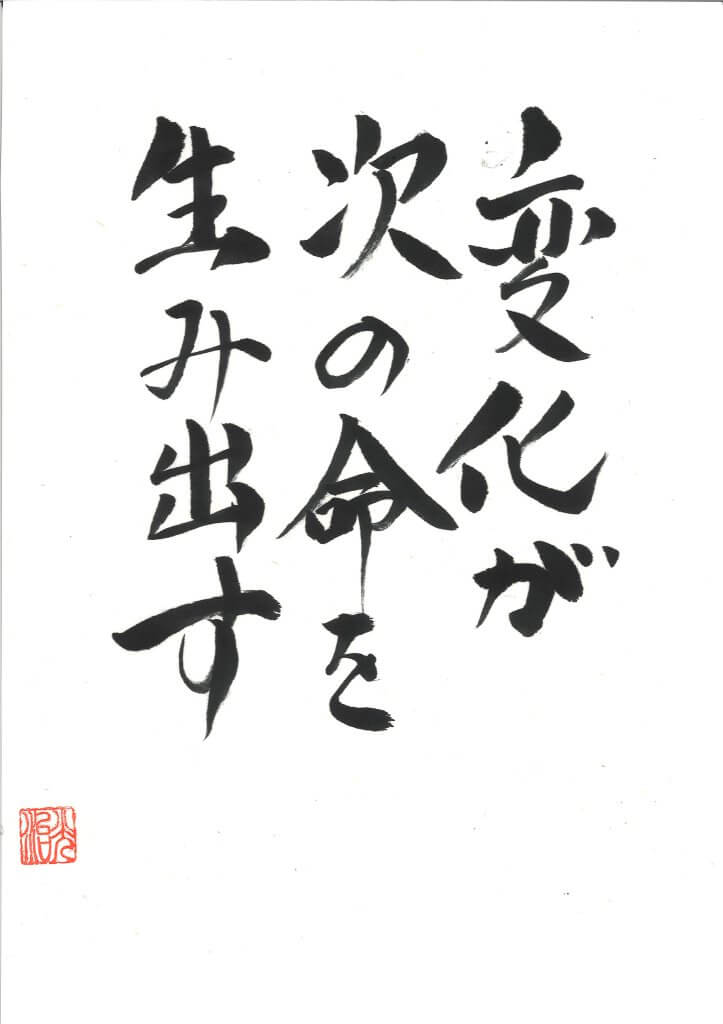 変化が
次の命を
生み出す